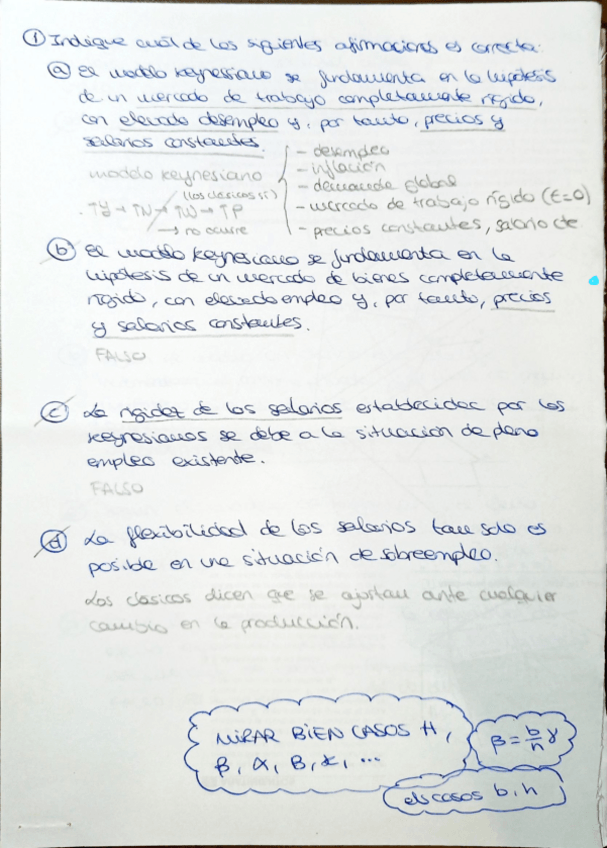 ① Indique cuál de las siguientes afirmaciones es correcta:
ⓐ El modelo keynesiano se fundamenta en la hipótesis
de un mercado de trabajo completamente rígido,
con elevado desempleo y, por tanto, precios y
salarios constantes.
modelo keynesiano
- desempleo
- inflación
- demanda global
- mercado de trabajo rígido (ε=0)
- precios constantes, salario cte
(los clásicos sí)
. ↑y → ↑N → ↑W → ↑P
→ no ocurre
ⓑ El modelo keynesiano se fundamenta en la
hipótesis de un mercado de bienes completamente
rígido, con elevado empleo y, por tanto, precios
y salarios constantes.
FALSO
ⓒ La rigidez de los salarios establecidos por los
keynesianos se debe a la situación de pleno
empleo existente.
FALSO
ⓓ La flexibilidad de los salarios tan solo es
posible en una situación de sobreempleo.
Los clásicos dicen que se ajustan ante cualquier
cambio en la producción.
MIRAR BIEN CASOS H,
β, α, B, k, ...
β = b/h γ
els casos b, h